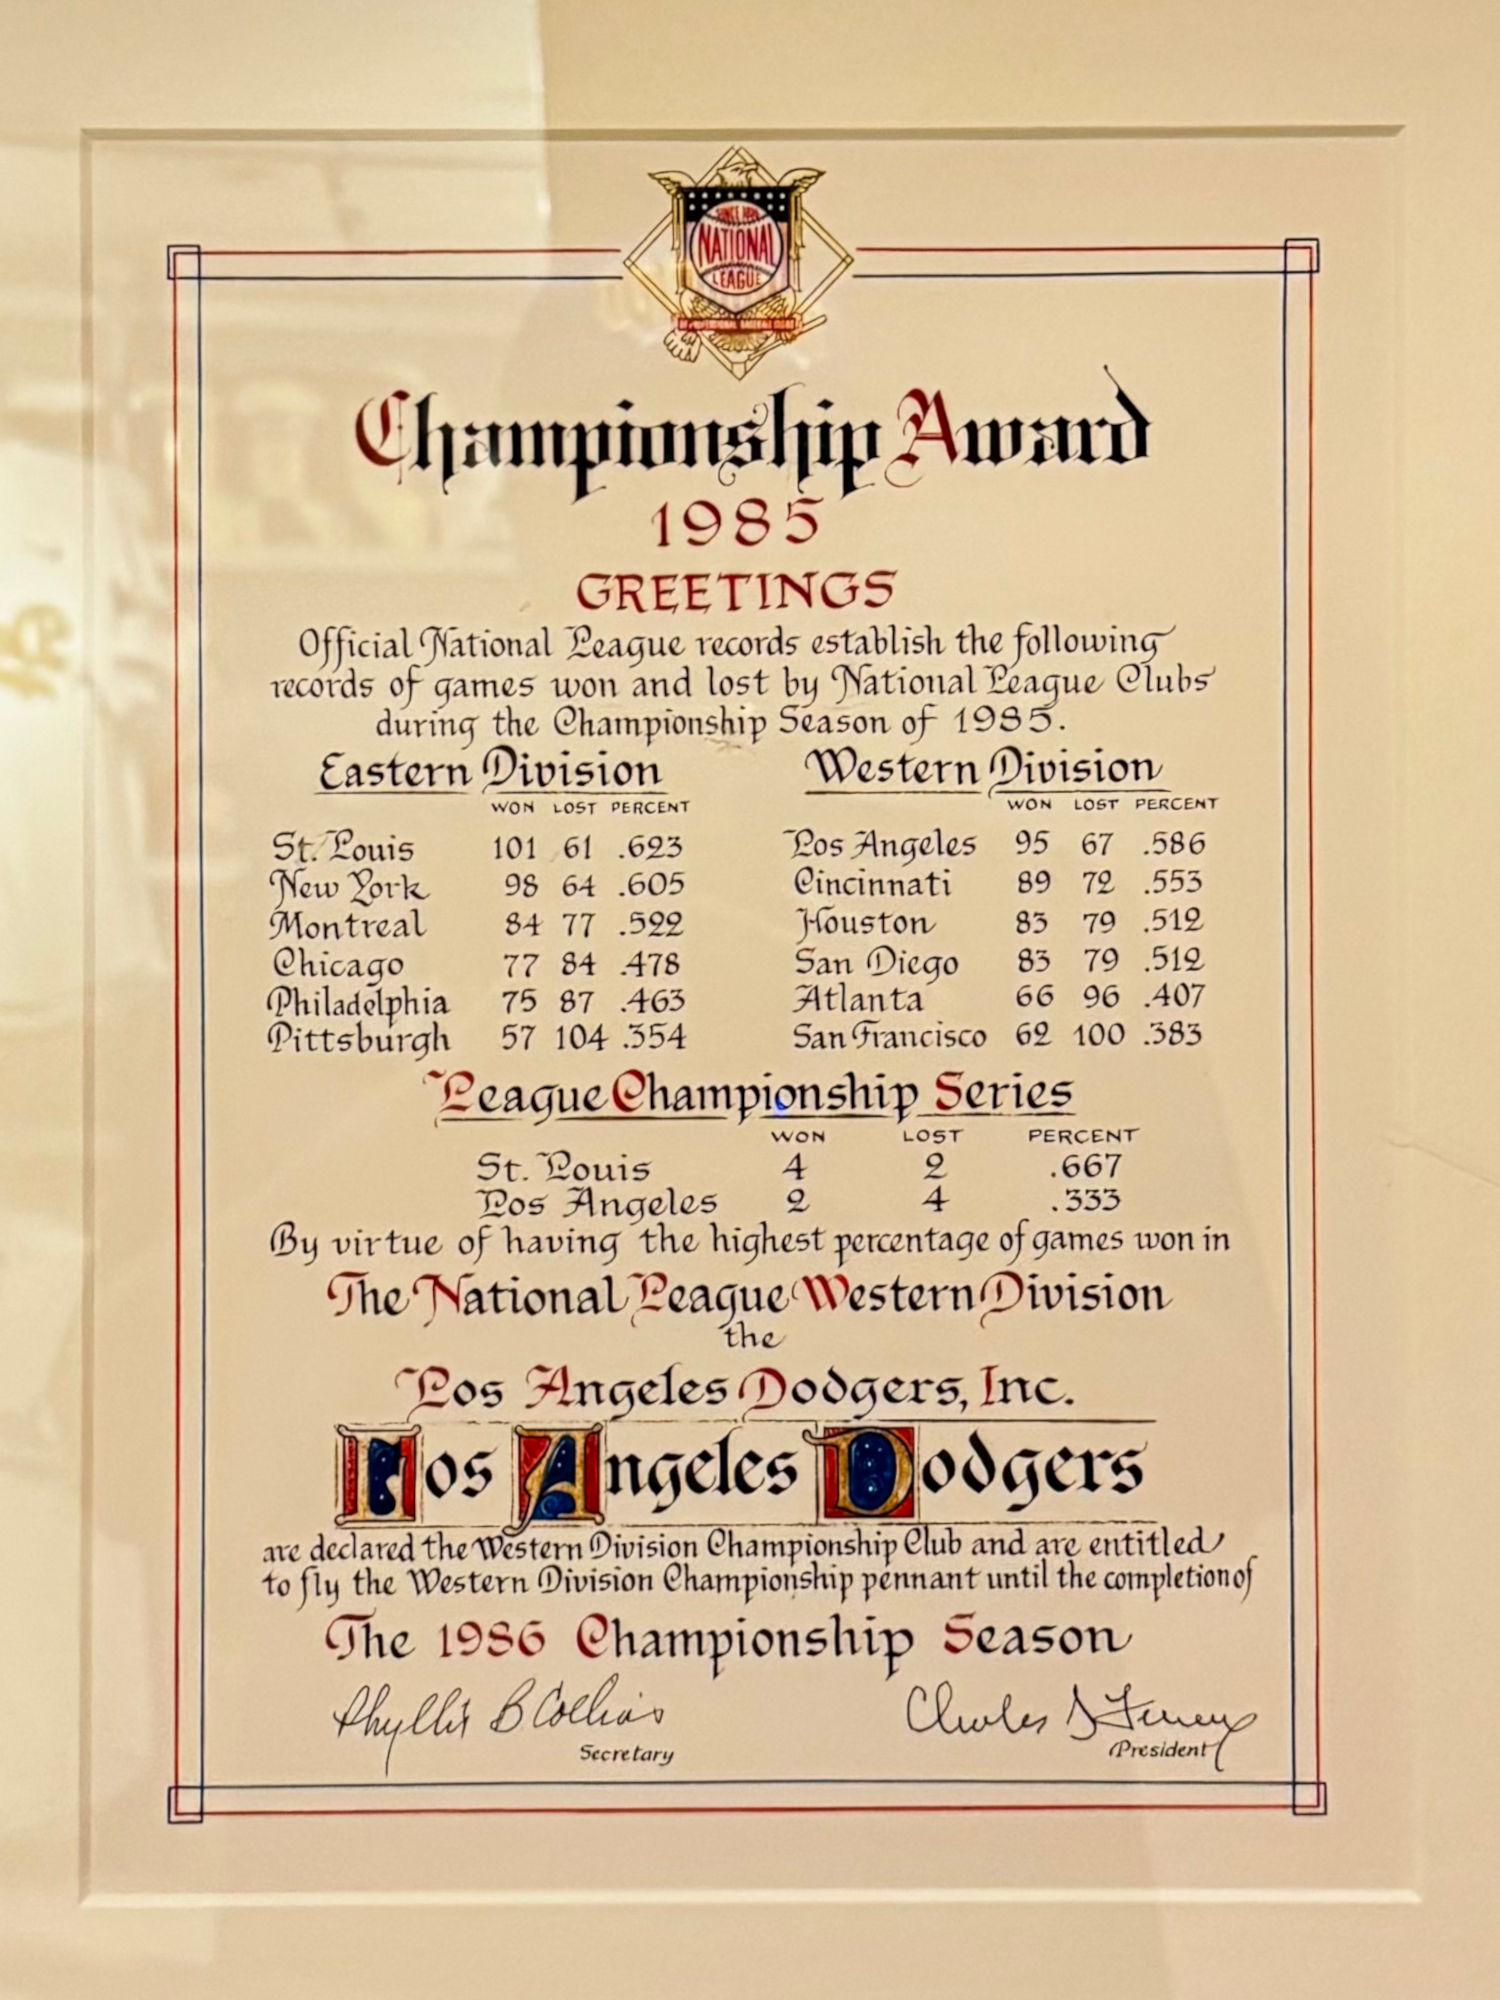 SINCE 1876
NATIONAL
LEAGUE
Championship Award
1985
GREETINGS
Official National League records establish the following
records of games won and lost by National League Clubs
during the Championship Season of 1985.
Eastern Division
WON LOST PERCENT
St. Louis 101 61 .623
New York 98 64 .605
Montreal 84 77 .522
Chicago 77 84 .478
Philadelphia 75 87 .463
Pittsburgh 57 104 .354
Western Division
WON LOST PERCENT
Los Angeles 95 67 .586
Cincinnati 89 72 .553
Houston 83 79 .512
San Diego 83 79 .512
Atlanta 66 96 .407
San Francisco 62 100 .383
League Championship Series
WON LOST PERCENT
St. Louis 4 2 .667
Los Angeles 2 4 .333
By virtue of having the highest percentage of games won in
The National League Western Division
the
Los Angeles Dodgers, Inc.
Los Angeles Dodgers
are declared the Western Division Championship Club and are entitled
to fly the Western Division Championship pennant until the completion of
The 1986 Championship Season
Phyllis B Collins
Secretary
Charles S Feeney
President